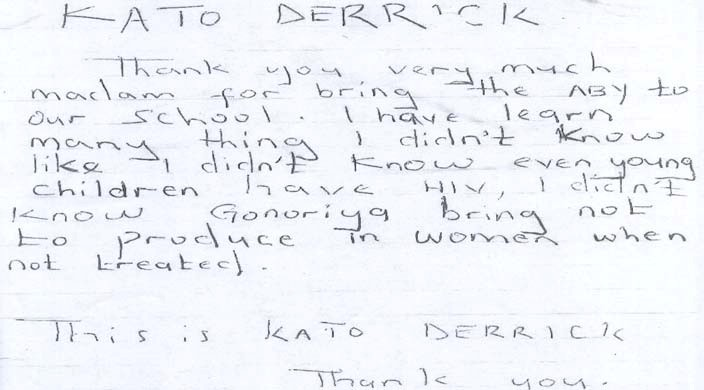 KATO DERRICK
Thank you very much
madam for bring the ABY to
our school. I have learn
many thing I didn't know
like I didn't know even young
children have HIV, I didn't
know Gonoriya bring not
to produce in women when
not treated.
This is KATO DERRICK
Thank you.